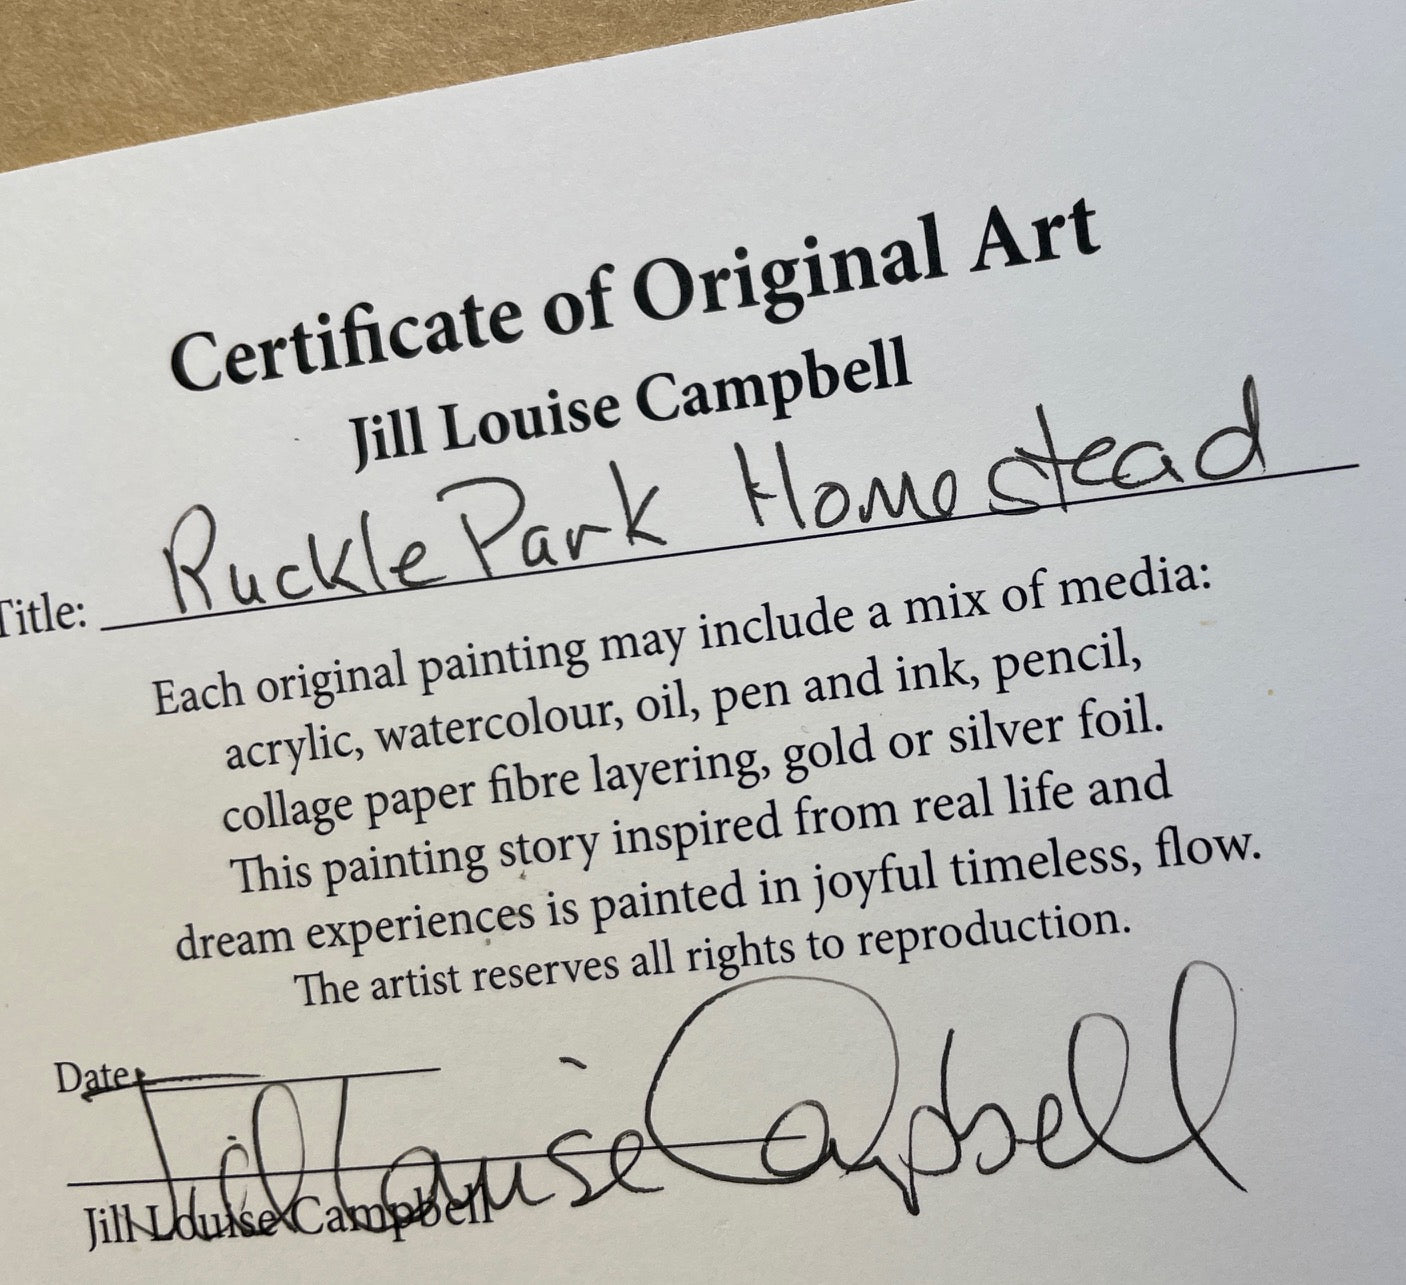 Certificate of Original Art
Jill Louise Campbell
Title: Ruckle Park Homestead
Each original painting may include a mix of media:
acrylic, watercolour, oil, pen and ink, pencil,
collage paper fibre layering, gold or silver foil.
This painting story inspired from real life and
dream experiences is painted in joyful timeless, flow.
The artist reserves all rights to reproduction.
Date:
Jill Louise Campbell
Jill Louise Campbell